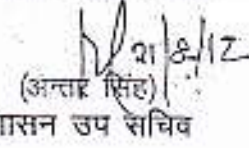 21/8/12
(अन्तर सिंह)
शासन उप सचिव